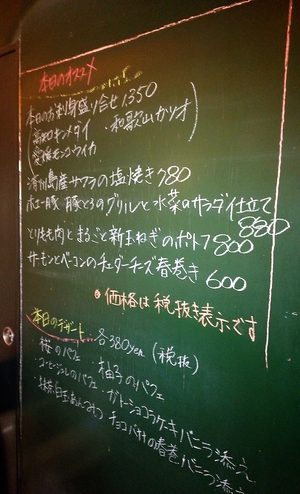 本日のオススメ
本日のお刺身盛り合せ 1350
高知キンメダイ ・和歌山カツオ
愛媛モンゴウイカ
済州島産サワラの塩焼き 780
ホエー豚 豚とろのグリルと水菜のサラダ仕立て
880
とりもも肉とまるごと新玉ねぎのポトフ 800
サーモンとベーコンのチェダーチーズ春巻き 600
●価格は税抜き表示です
本日のデザート 各380yen (税抜)
桜のパフェ 柚子のパフェ
コーヒーゼリーのパフェ ガトーショコラケーキバニラ添え
抹茶白玉あんみつ チョコバナナの春巻バニラ添え